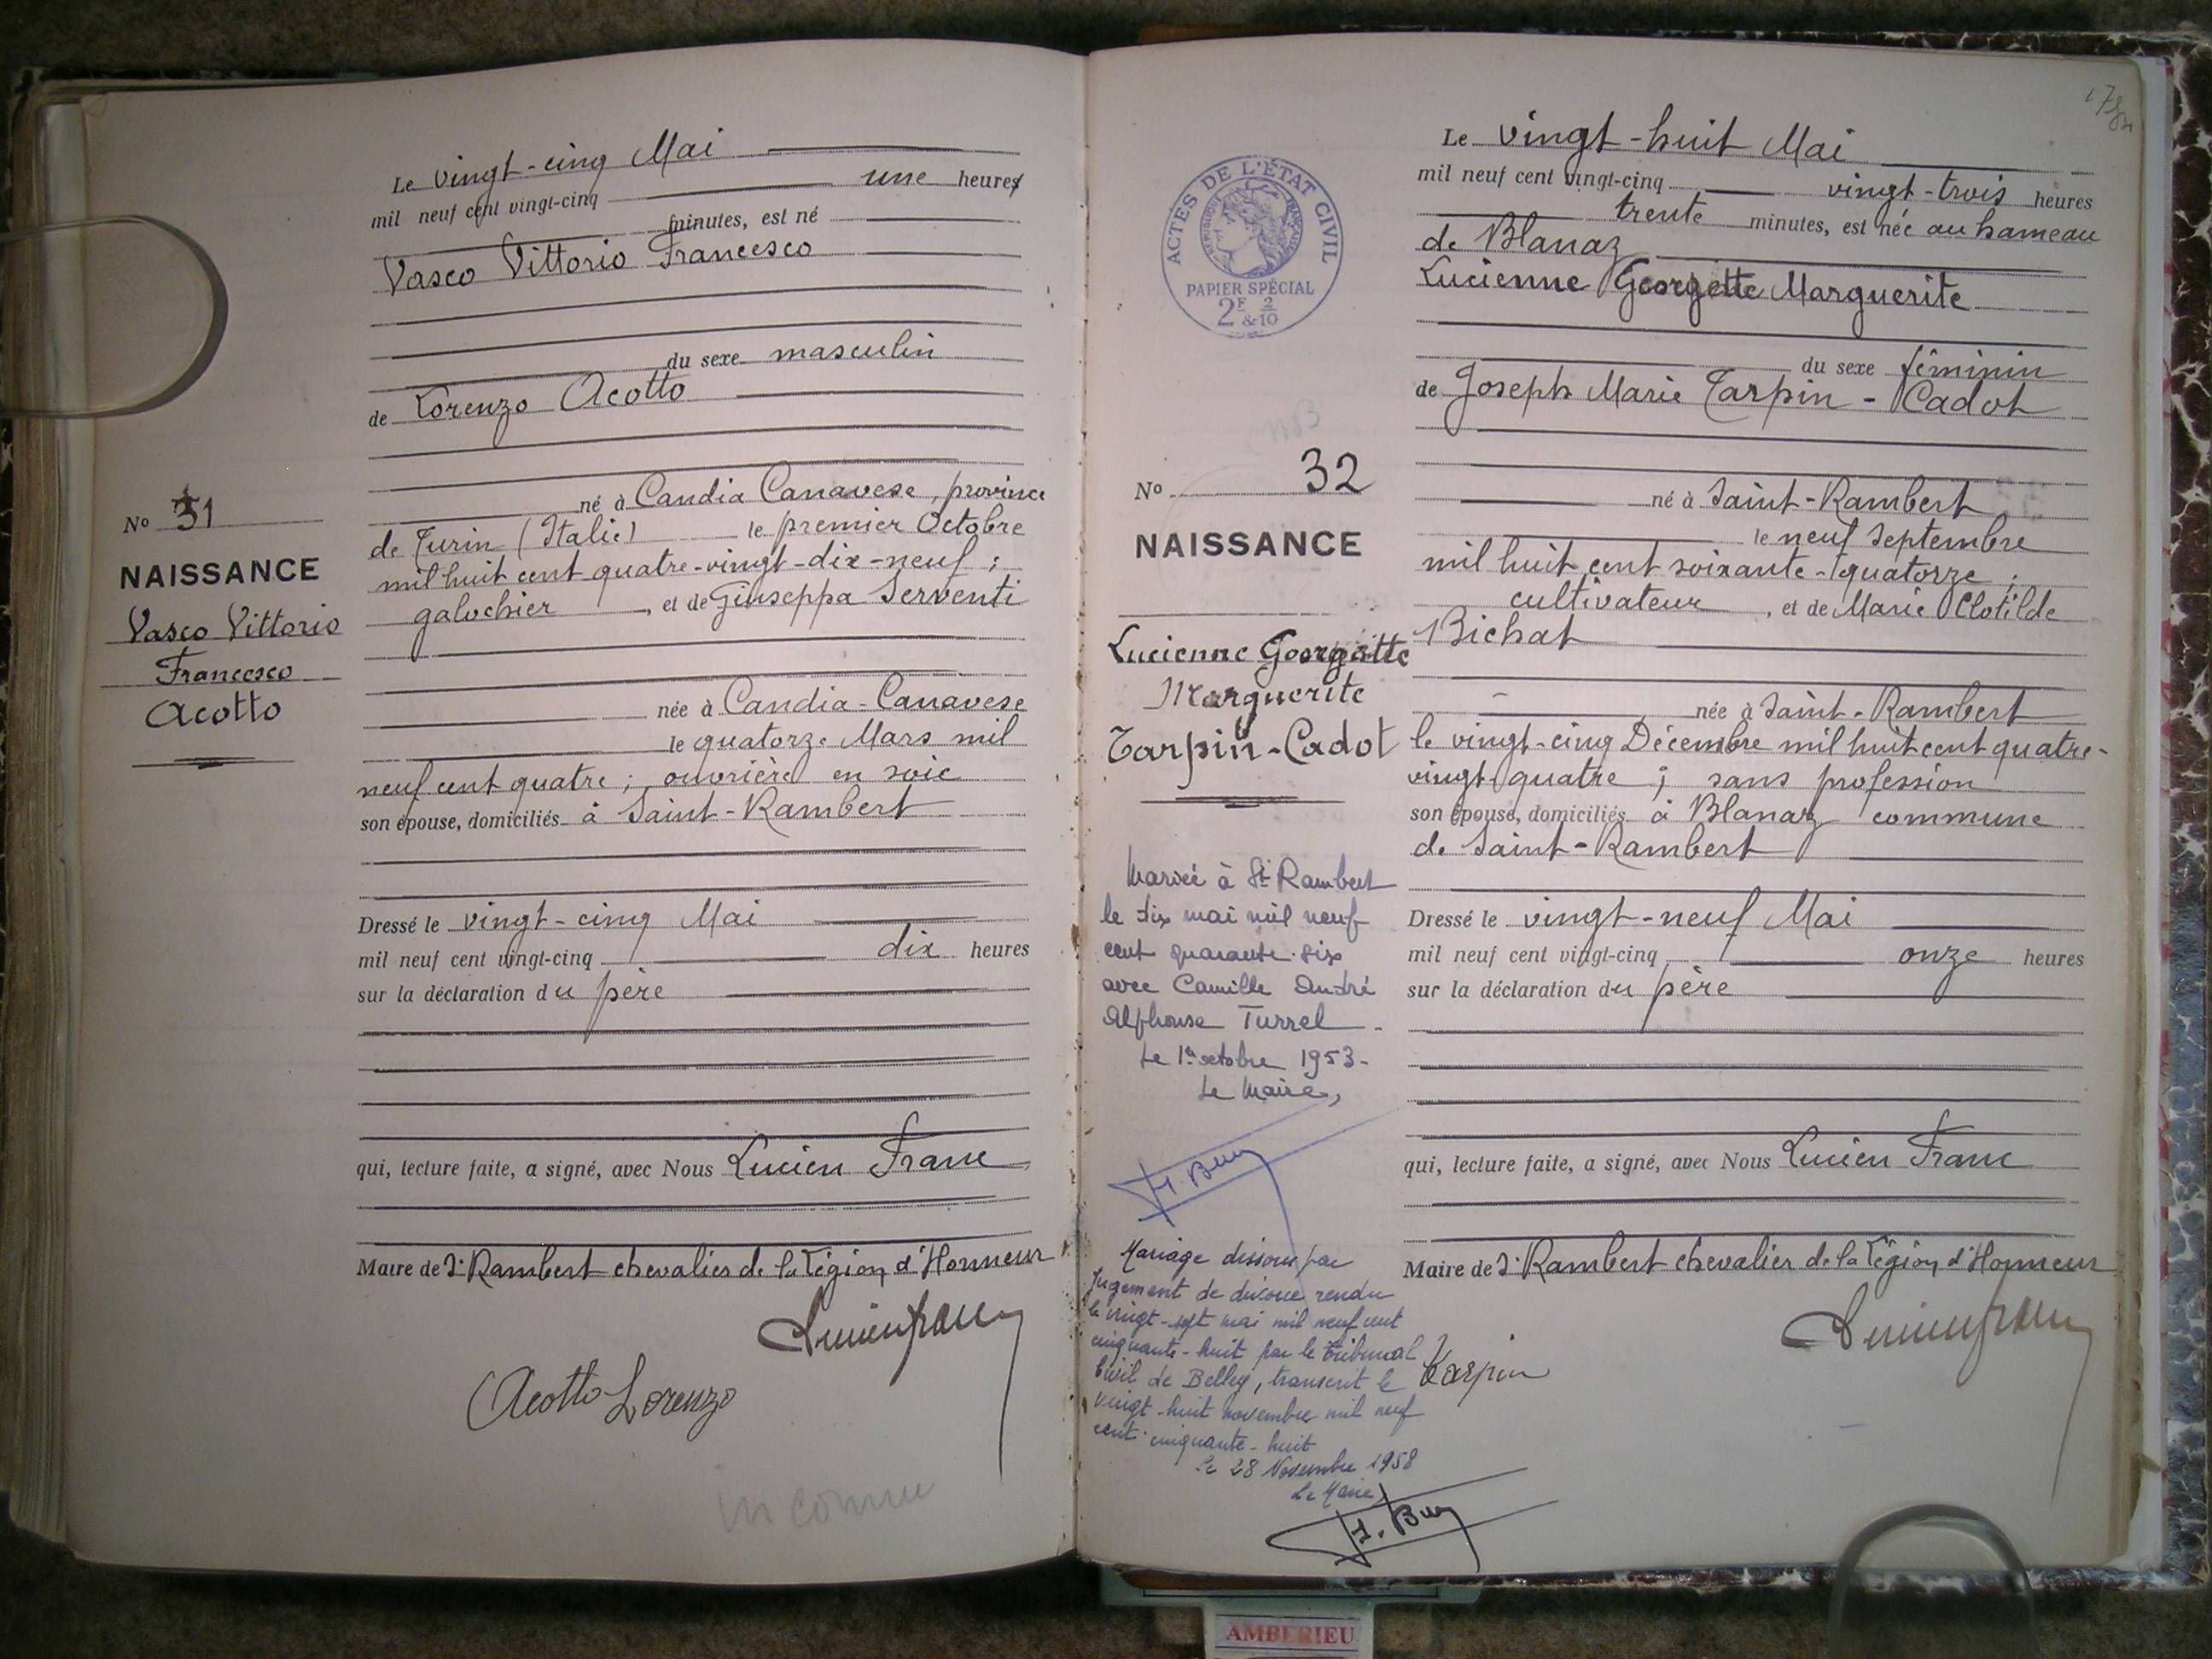 Le vingt-cinq Mai
mil neuf cent vingt-cinq une heures
minutes, est né
Vasco Vittorio Francesco
du sexe masculin
de Lorenzo Acotto
né à Candia Canavese, province
de Turin (Italie) le premier Octobre
mil huit cent quatre-vingt-dix-neuf ;
galochier, et de Giuseppa Serventi
née à Candia-Canavese
le quatorze Mars mil
neuf cent quatre ; ouvrière en soie
son épouse, domiciliés à Saint-Rambert
Dressé le vingt-cinq Mai
mil neuf cent vingt-cinq dix heures
sur la déclaration du père
qui, lecture faite, a signé, avec Nous Lucien Franc
Maire de St Rambert chevalier de la Légion d'Honneur
Acotto Lorenzo
inconnu
No 31
NAISSANCE
Vasco Vittorio
Francesco
Acotto
ACTES DE L'ÉTAT CIVIL
RÉPUBLIQUE FRANÇAISE
PAPIER SPÉCIAL
2F 2
&10
No 32
NAISSANCE
Lucienne Georgette
Marguerite
Tarpin-Cadot
Mariée à St Rambert
le dix mai mil neuf
cent quarante-six
avec Camille André
Alphonse Turrel.
Le 1er octobre 1953-
Le Maire,
Mariage dissous par
jugement de divorce rendu
le vingt-sept mai mil neuf cent
cinquante-huit par le tribunal
Civil de Belley, transcrit le
vingt-huit novembre mil neuf
cent cinquante-huit
le 28 Novembre 1958
Le Maire
Le vingt-huit Mai
mil neuf cent vingt-cinq vingt-trois heures
trente minutes, est née au hameau
de Blanaz
Lucienne Georgette Marguerite
du sexe féminin
de Joseph Marie Tarpin-Cadot
né à Saint-Rambert
le neuf Septembre
mil huit cent soixante-quatorze ;
cultivateur, et de Marie Clotilde
Bichat
née à Saint-Rambert
le vingt-cinq Décembre mil huit cent quatre-
vingt quatre ; sans profession
son épouse, domiciliés à Blanaz commune
de Saint-Rambert
Dressé le vingt-neuf Mai
mil neuf cent vingt-cinq onze heures
sur la déclaration du père
qui, lecture faite, a signé, avec Nous Lucien Franc
Maire de St Rambert chevalier de la Légion d'Honneur
Tarpin
AMBERIEU